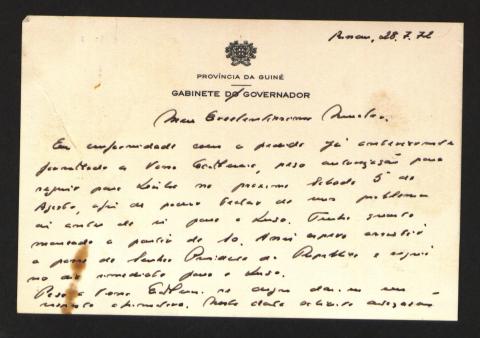 Bissau, 28.7.72
PROVÍNCIA DA GUINÉ
GABINETE DO GOVERNADOR
Meu Excelentíssimo Ministro.
Em conformidade com o pedido já anteriormente
formulado a Vossa Excelência, peço autorização para
seguir para Lisboa no próximo Sábado 5 de
Agosto, a fim de poder tratar de uns problemas
aí antes de ir para o Luso. Tenho quarto
marcado a partir de 10. Anseio assistir
a posse do Senhor Presidente da República e seguir
no dia imediato para o Luso.
Peço a Vossa Excelência se digne dar-me uma
resposta afirmativa. Nesta data